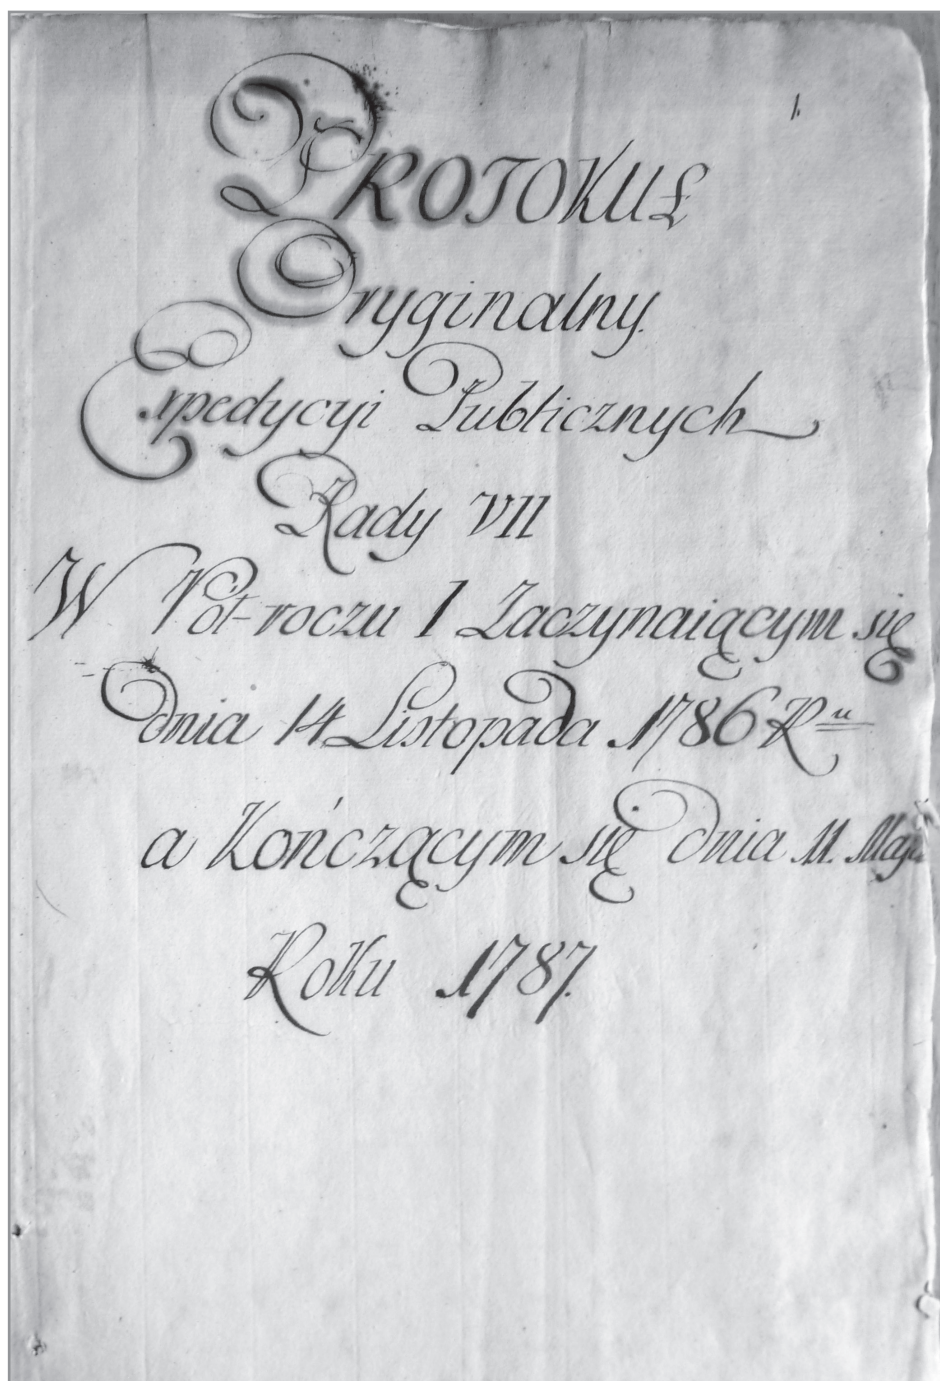 1.
PROTOKUŁ
Oryginalny.
Expedycyi Publicznych
Rady VII
W Pół-roczu I Zaczynaiącym się
dnia 14 Listopada 1786 Ru
a Kończącym się dnia 11. Maja
Roku 1787.